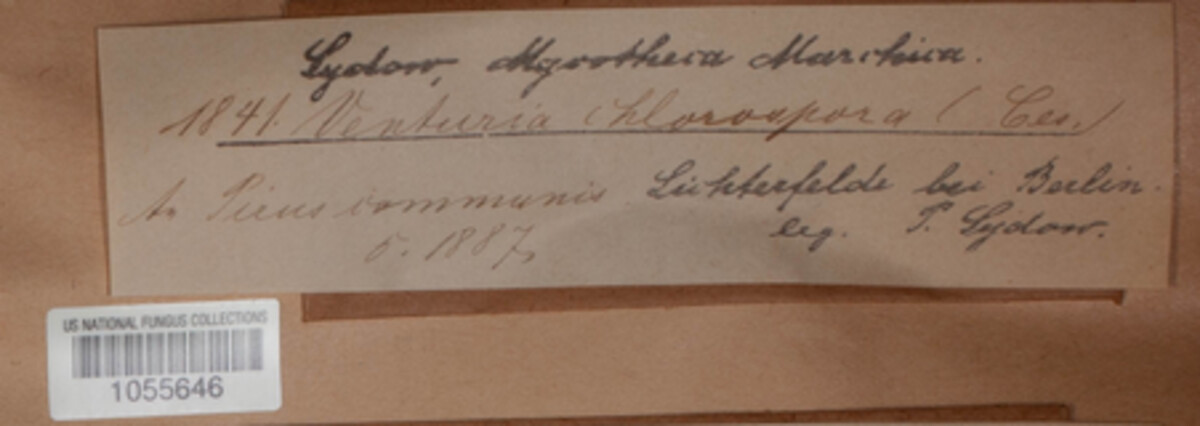 Sydow, Mycotheca Marchica.
1841. Venturia chlorospora (Ces.)
An Pirus communis Lichterfelde bei Berlin.
5. 1887, leg. P. Sydow.
US NATIONAL FUNGUS COLLECTIONS
1055646